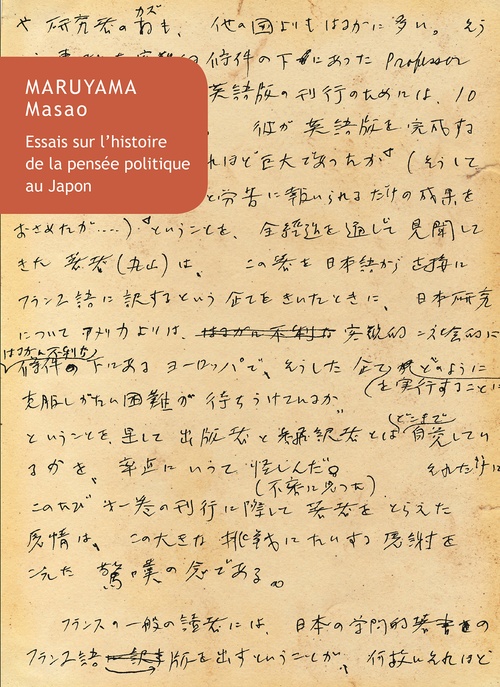 や 研究者の数も、他の国よりもはるかに多い。そう
件の下にあった Professor
MARUYAMA
Masao
Essais sur l'histoire
de la pensée politique
au Japon
英語版の刊行のためには、10
彼が英語版を完成する
れほど巨大であったか（そうして
と労苦に報いられるだけの成果を
おさめたが……）ということを、全経過を通じて見聞して
きた著者（丸山）は、この書を日本語から直接に
フランス語に訳するという企てをきいたときに、日本研究
についてアメリカよりは、はるかに不利な 実観的
はるかに不利な
条件の下にあるヨーロッパで、そうした企て がどのように
（を実行することに
克服しがたい困難が待ちうけているか
どこまで
ということを、果して出版者と翻訳者とは 自覚してい
るかを、率直にいって怪しんだ。それだけに
（不審に思った）
このたび 第一巻の刊行に際して著者をとらえた
感情は、この大きな挑戦にたいする感謝を
こえた 驚嘆の念である。
フランスの一般の読者には、日本の学問的著書の
フランス語 版を出すということが、何故それほど